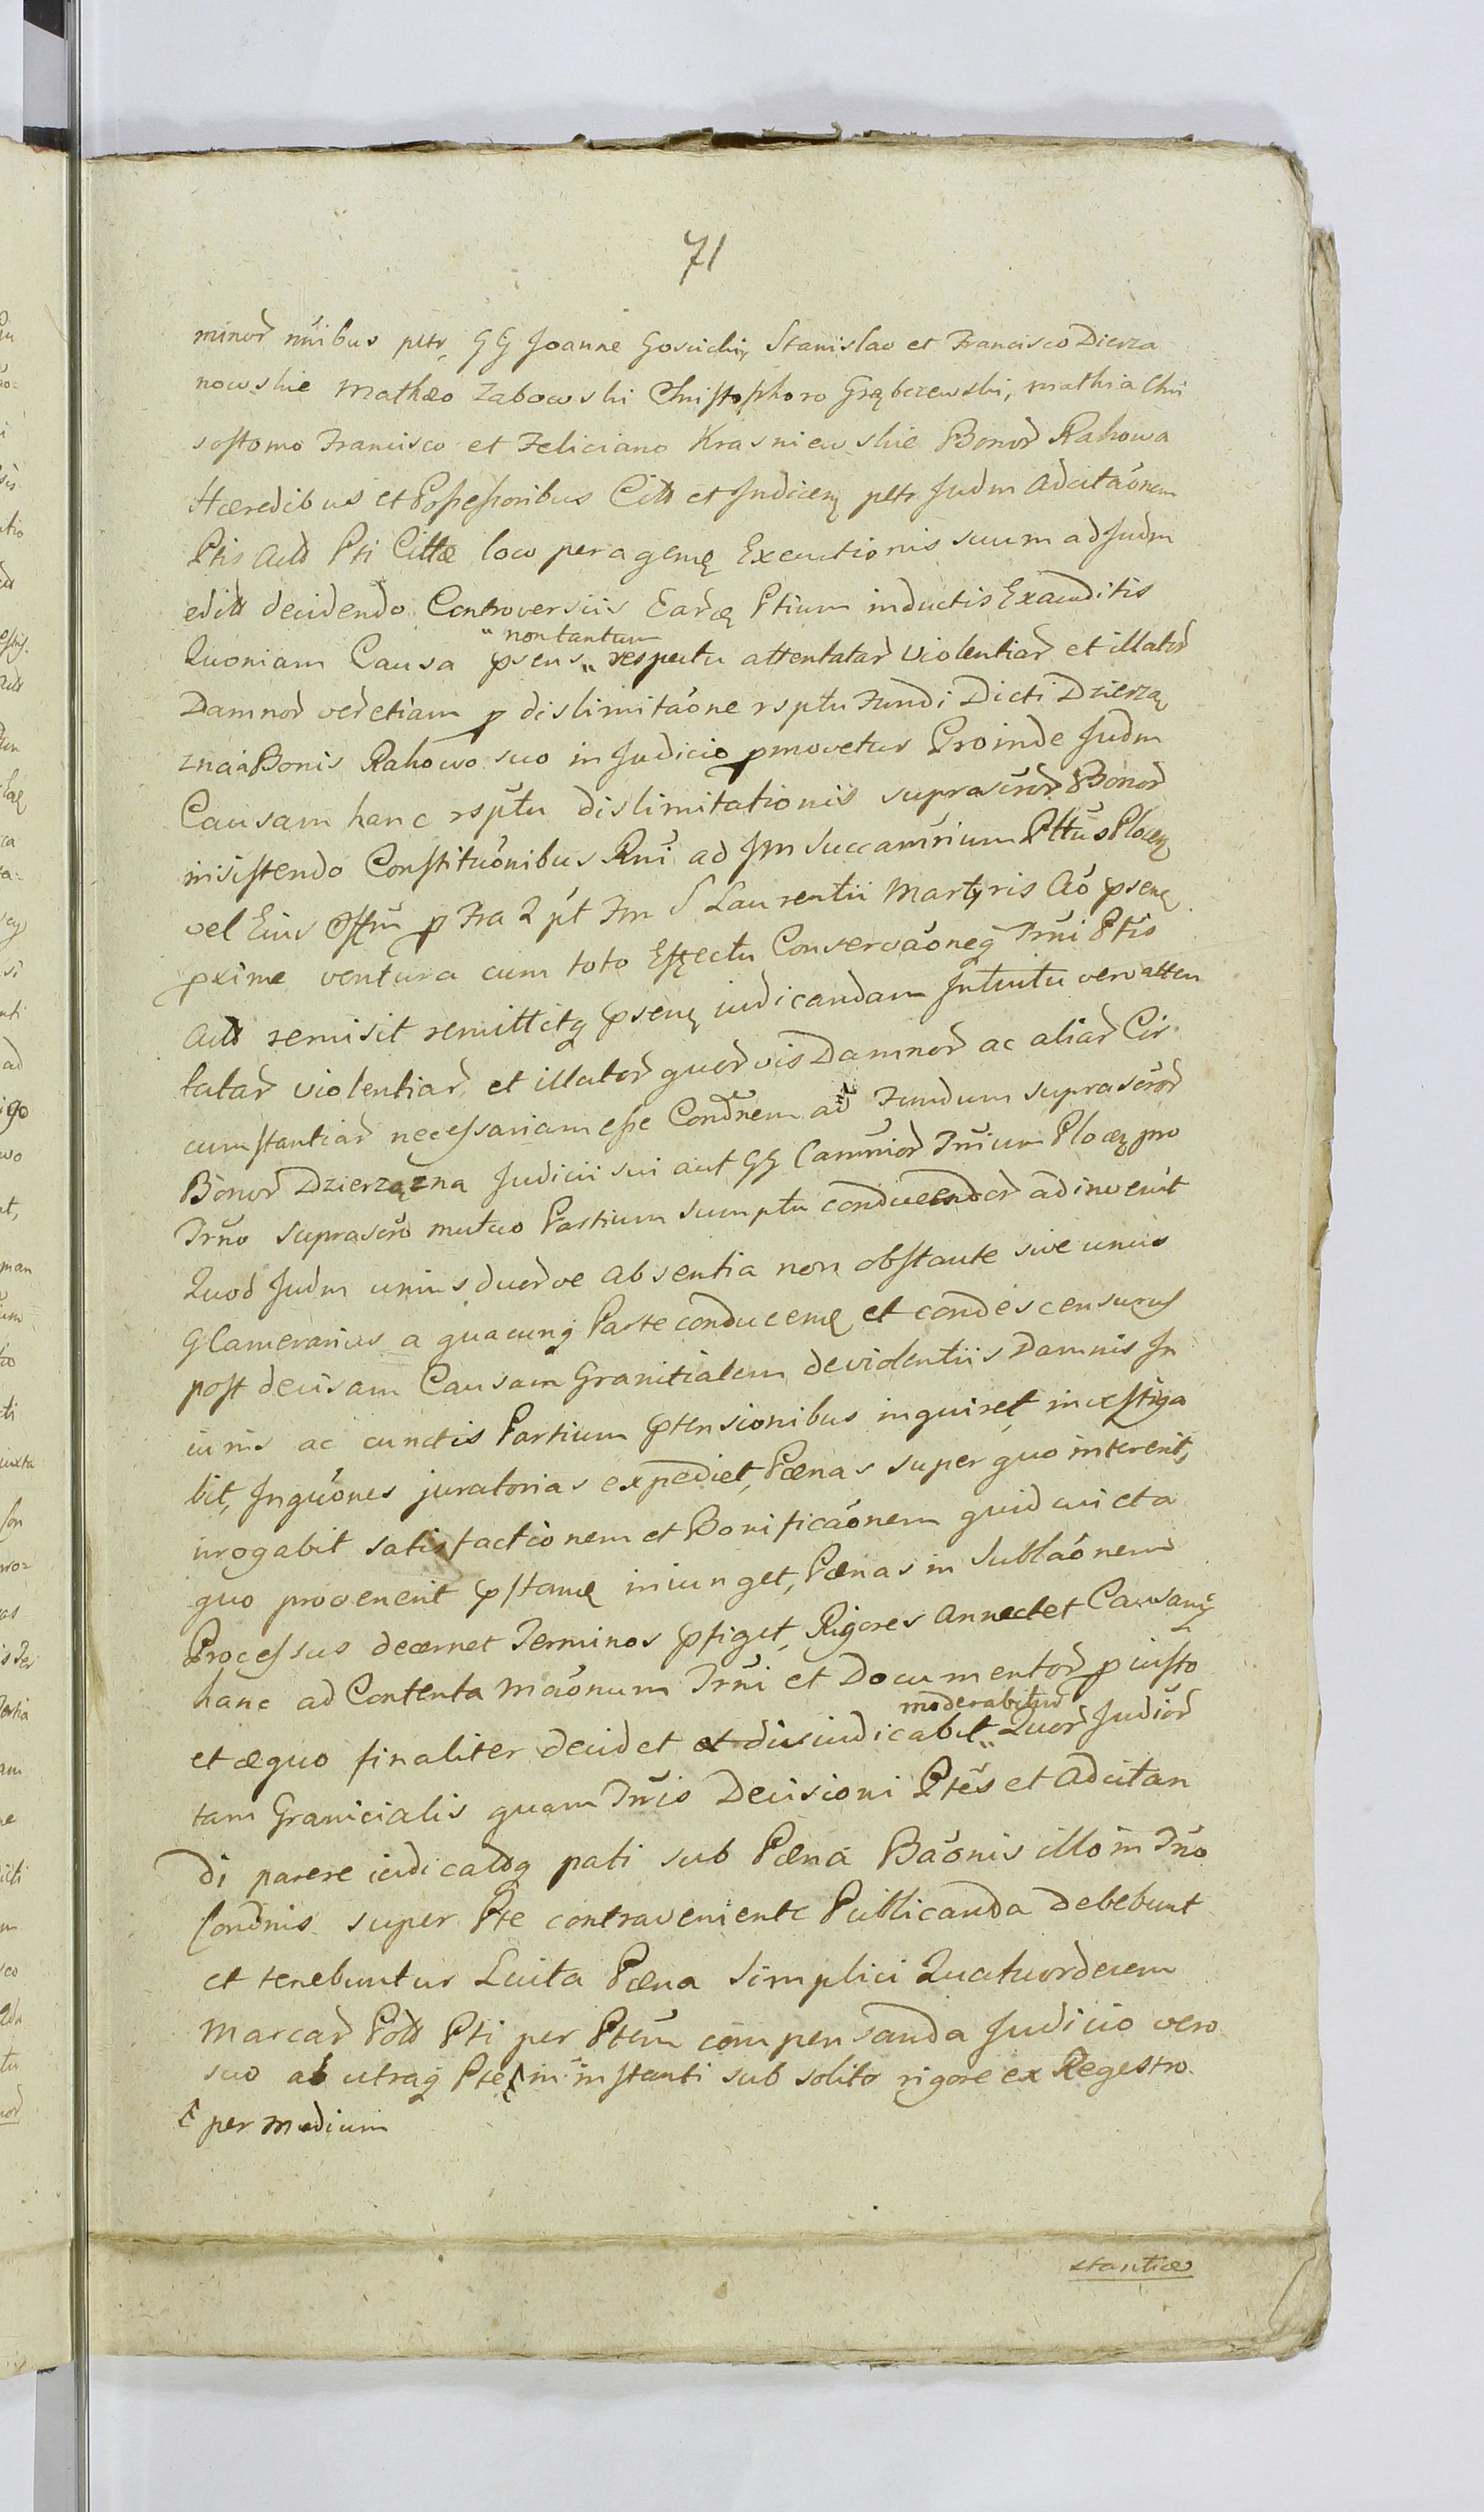 71
minor nnibus pltr GG Joanne Goscicki Stanislao et Francisco Dierza
nowskie Mathæo Zabowski Christophoro Grębczewski, Mathia Chri
sostomo Francisco et Feliciano Krasniewskie Bonor Rahowa
Hæredibus et Possessoribus Citt et Judicen pltr Judm adcitaonem
Ptis Actt Pti Cittæ loco peragenę Executionis suum ad Judm
editt decidendo Controversiis Earq Ptium inductis Exauditis
Quoniam Causa psens „non tantum„ respectu attentatar violentiar et illator
Damnor ver etiam p dislimitaone rsptu Fundi Dicti Dzierzą
zna a Bonis Rahowo suo in Judicio pmovetur Proinde Judm
Causam hanc rsptu dislimitationis suprascror Bonor
insistendo Constituonibus Rni ad Jm Succamrium Pttus Plocen
vel Eius Offm p Fra 2 pt Fm S Laurentii Martyris Ao psenę
pxime ventura cum toto Effectu Conservaoneq Trni Ptis
Actt remisit remittitq psenę iudicandam Intuitu vero atten
tatar violentiar et illator quorvis Damnor ac aliar Cir
cumstantiar necessariam esse Condnem ad Fundum suprascror
Bonor Dzierzązna Judicii sui aut GG Camrior Trium Plocen pro
Trno suprascro mutuo Partium sumptu conducendor adinvenit
Quod Judm unius duorve absentia non obstante sive unus
G Camerarius a quacunq Parte conducenę et condescensurus
post decisam Causam Granitialem de violentiis Damnis In
iuriis ac cunctis Partium ptensionibus inquiret investiga
bit, Inquones juratorias expediet, Pænas super quo intererit,
irrogabit satisfactionem et Bonificaonem quid cui et a
quo provenerit pstanę iniunget, Pænas in Sublaonem
Processus decernet Terminos pfiget, Rigores annectet Causamq
hanc ad Contenta Maonum Trni et Documentor p iusto
et æquo finaliter decidet et diiudicabit „moderabitur„ Quor Judior
tam Granicialis quam Tris Decisioni Ptes et adcitan
di parere iudicatoq pati sub Pæna Baonis illo in Trno
Condnis super Pte contraveniente Publicanda debebunt
et tenebuntur Luita Pæna simplici Quatuordecem
Marcar Poll Pti per Ptem compensanda Judicio vero
suo ab utraq Pte in instanti sub solito rigore ex Regestro
per medium
stantiæ